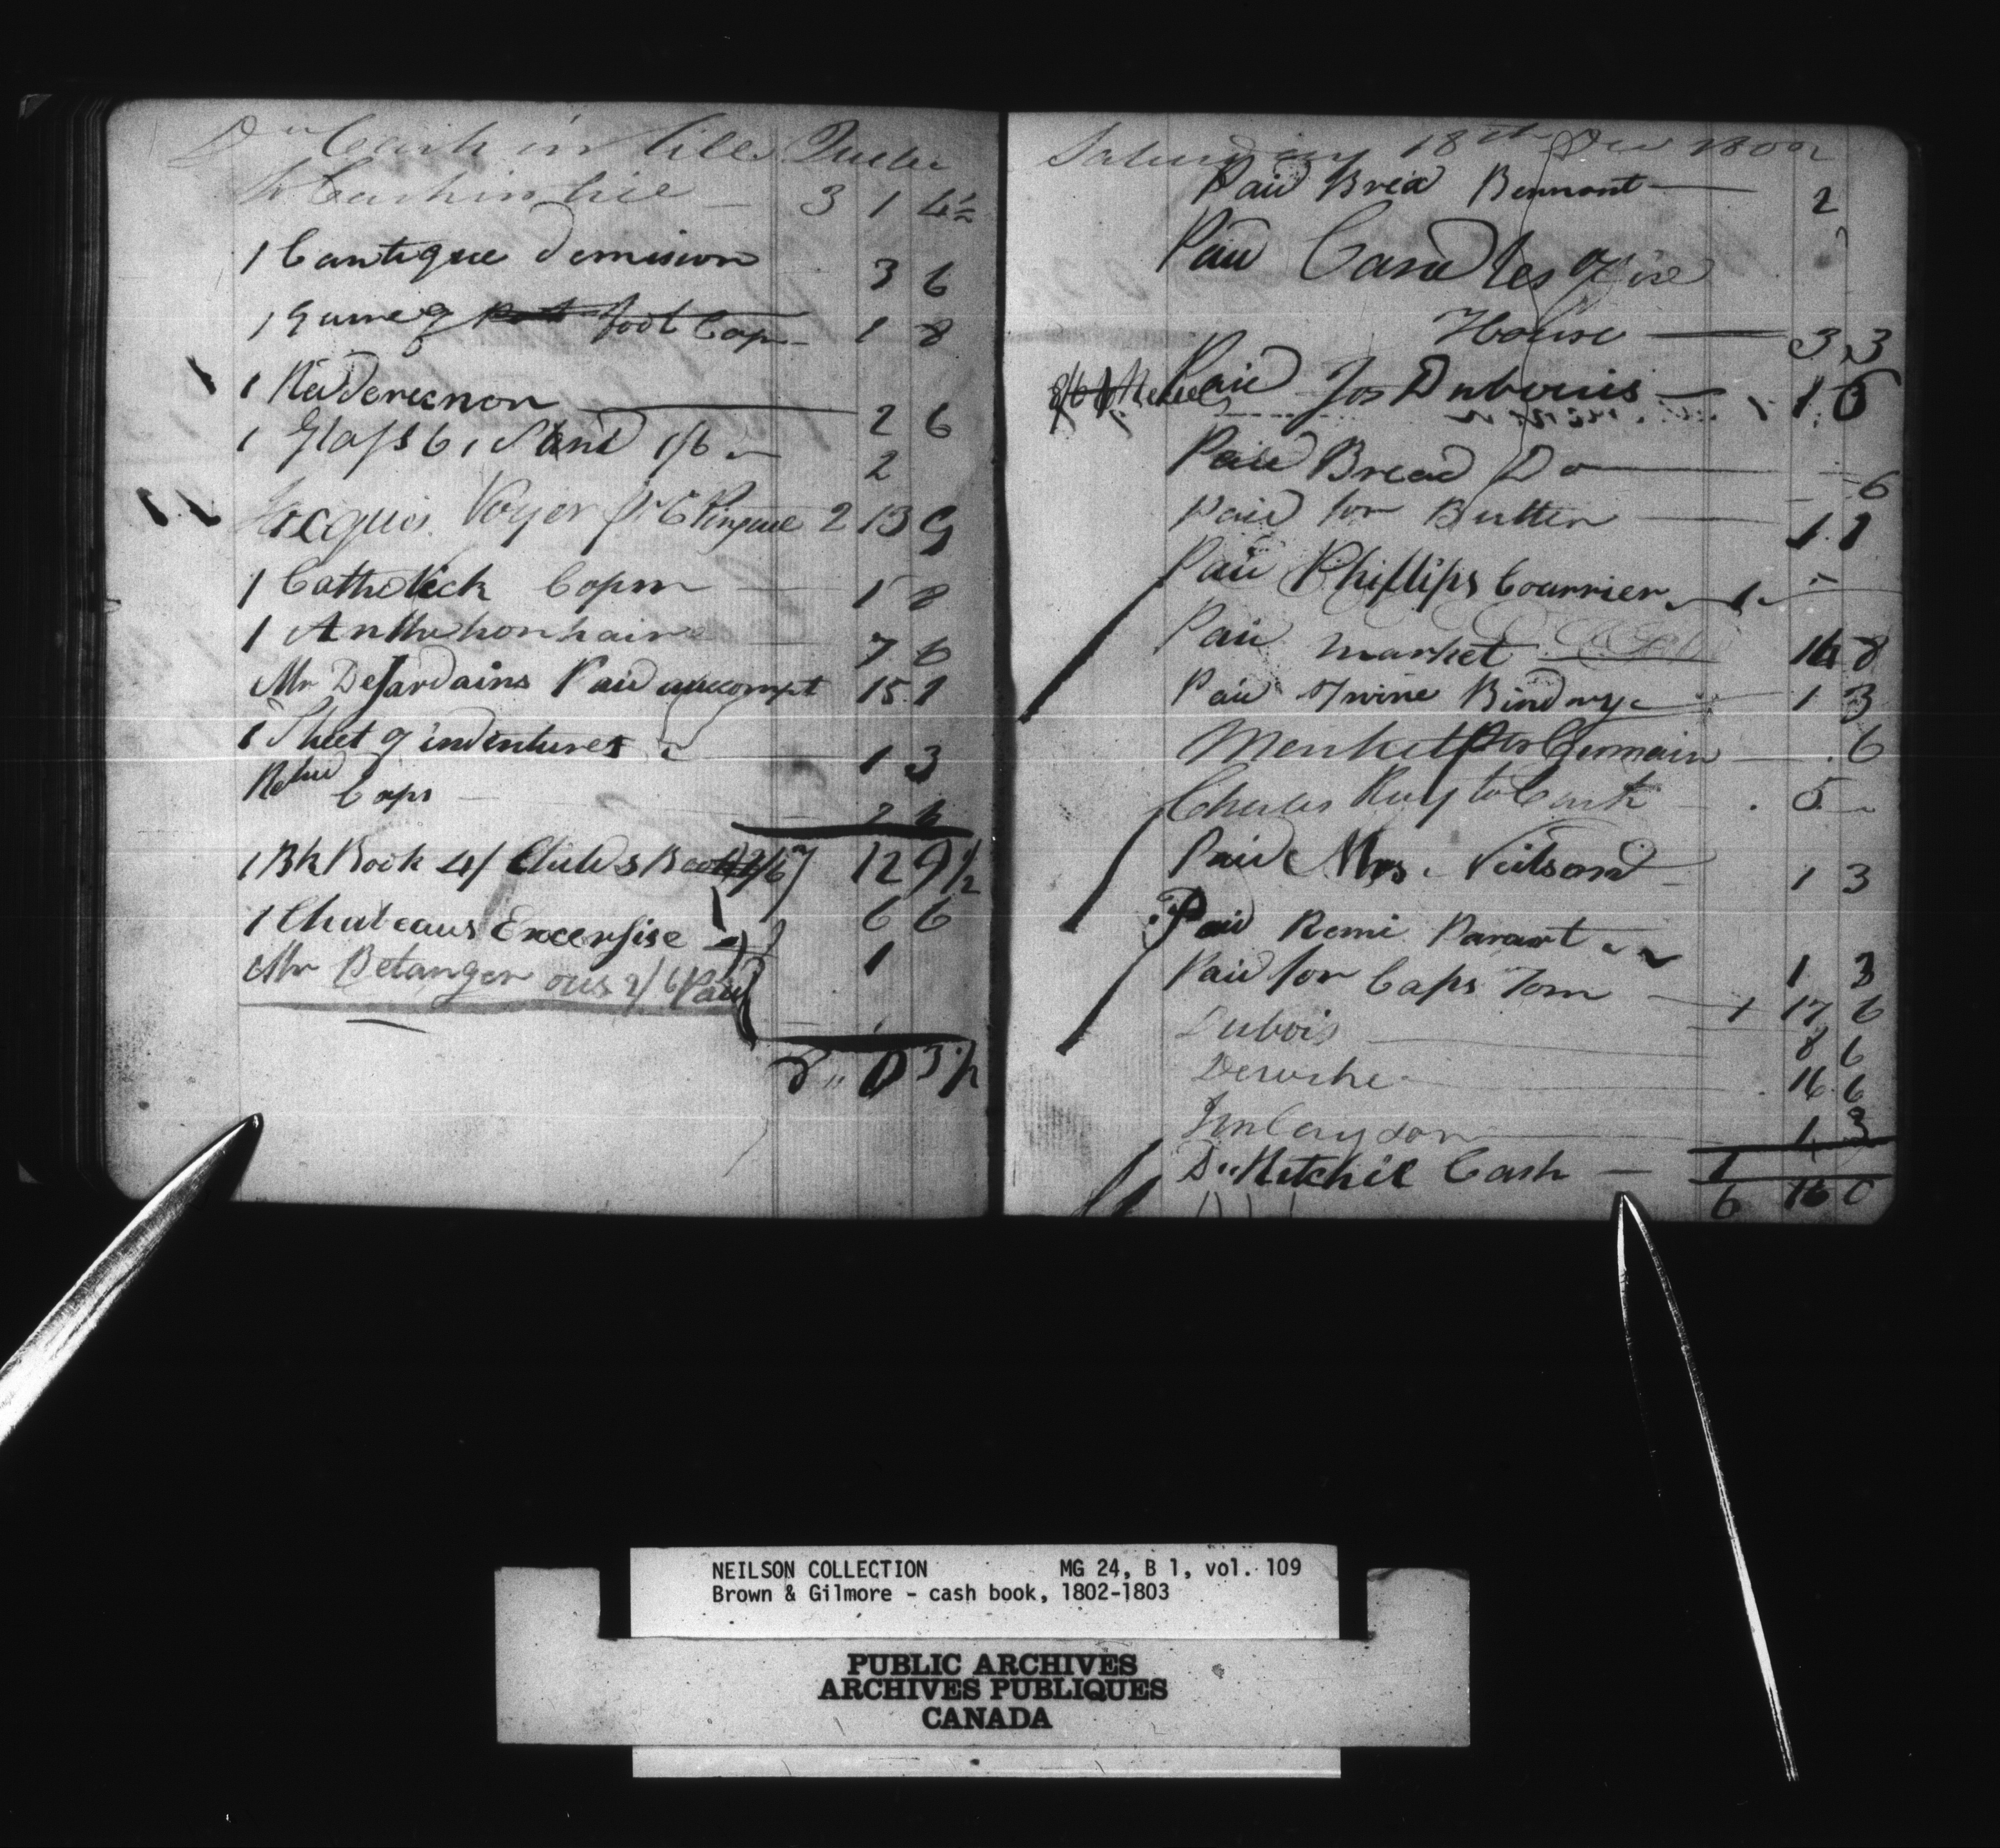 Dr Cash in till Quebec
To Cash in till — 3 1 4½
1 Cantique demision 3 6
1 quire of foolscap 1 8
1
1 Glass 6, 1 Sand 1/6 2
Jacques Voyer 2 13 9
1 Catholick Copm — 1 8
1 7 6
Mr Desjardains Paid accompt 15 1
1 Sheet of indentures 1 3
Caps — 2 6
1 Bk Book 4/ Childs Book 2/6 7 12 9½
1 Chateaus Excersise 6 6
Mr Belanger ows 2/6 Paid 1
8 " 0 3½
Saturday 18th Dec 1802
Paid Bread — 2
Paid Candles
House — 3 3
Paid Jos Dubouis — 1 6
Paid Bread Do — 6
Paid for Butter — 1 1
Paid Phillips Courrier 1
Paid market 14 8
Paid Twine Bindrye 1 3
Germain — 6
Charles Roy to Cash 5
Paid Mrs. Neilson 1 3
Paid Remi Parant 1 3
Paid for Caps Tom — 1 17 6
Dubois 8 6
Deroche 16 6
Finlayson 1 3
Dr Mitchil Cash — 1
6 16 0
NEILSON COLLECTION MG 24, B 1, vol. 109
Brown & Gilmore - cash book, 1802-1803
PUBLIC ARCHIVES
ARCHIVES PUBLIQUES
CANADA